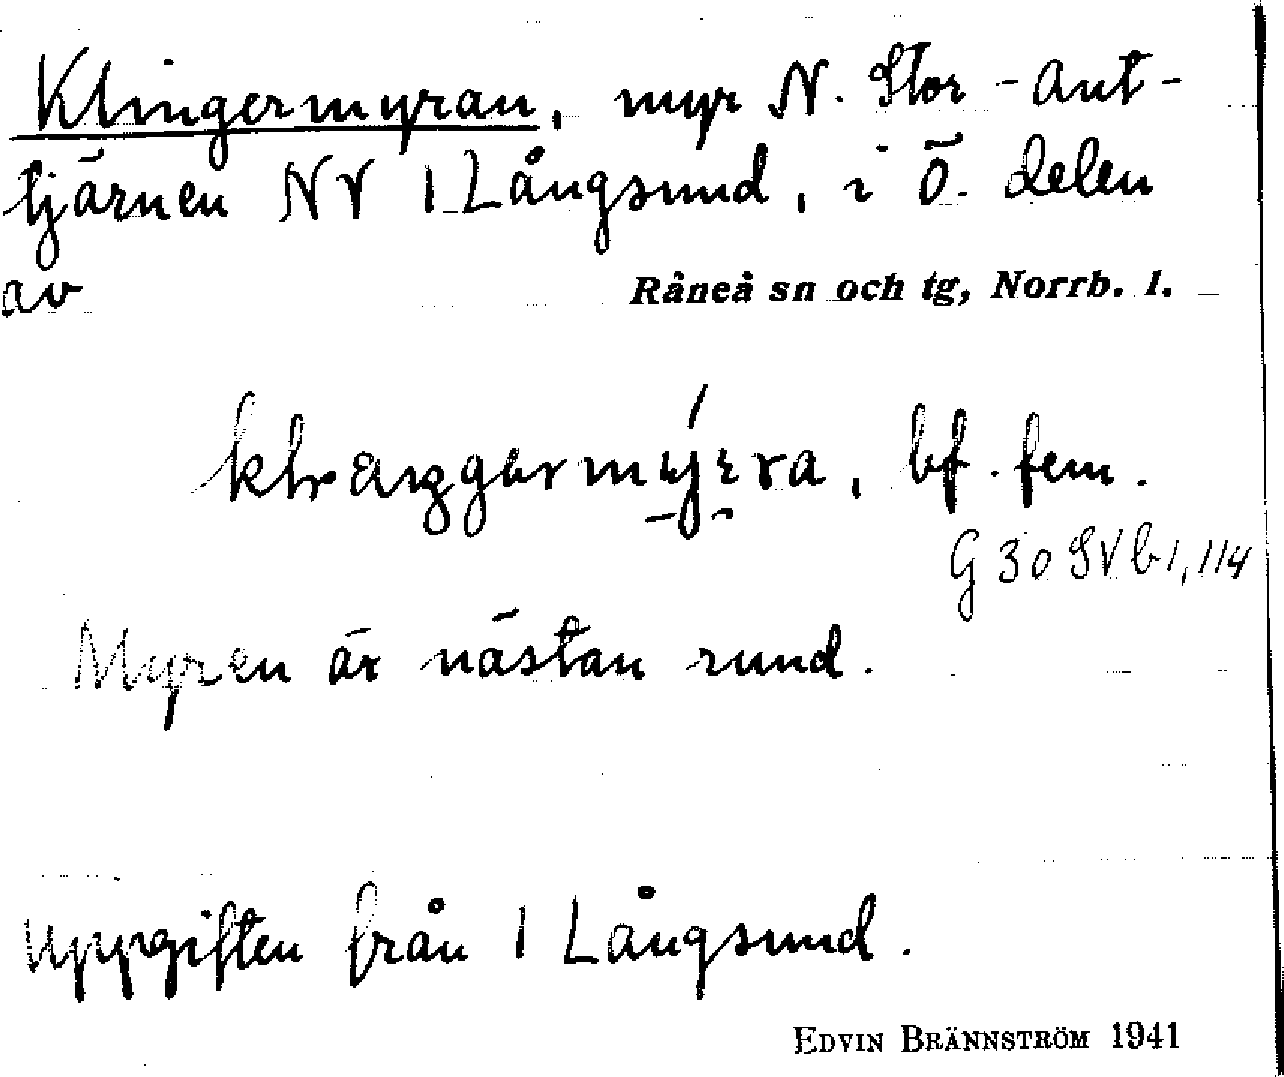 Klingermyran, myr N. Stor-Ant-
tjärnen NV 1 Långsund, i Ö. delen
av Råneå sn och tg, Norrb. l.
bf. fem.
G 30 SV b 1, 114
Myren är nästan rund.
Uppgiften från 1 Långsund.
EDVIN BRÄNNSTRÖM 1941